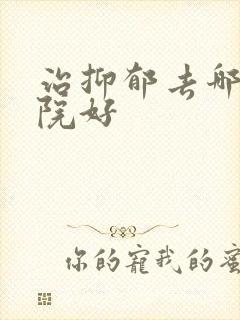 治抑郁去哪
院好
你的寵我的蜜